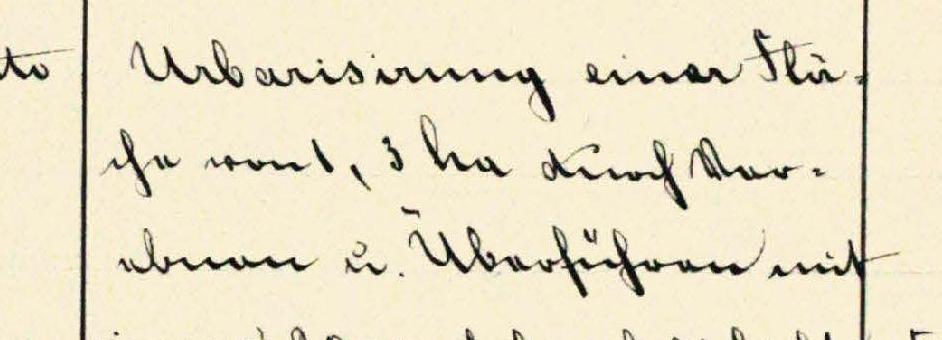 to Urbarisirung einer Flä-
che von 1,3 ha durch Ver-
ebnen u. Überführen mit